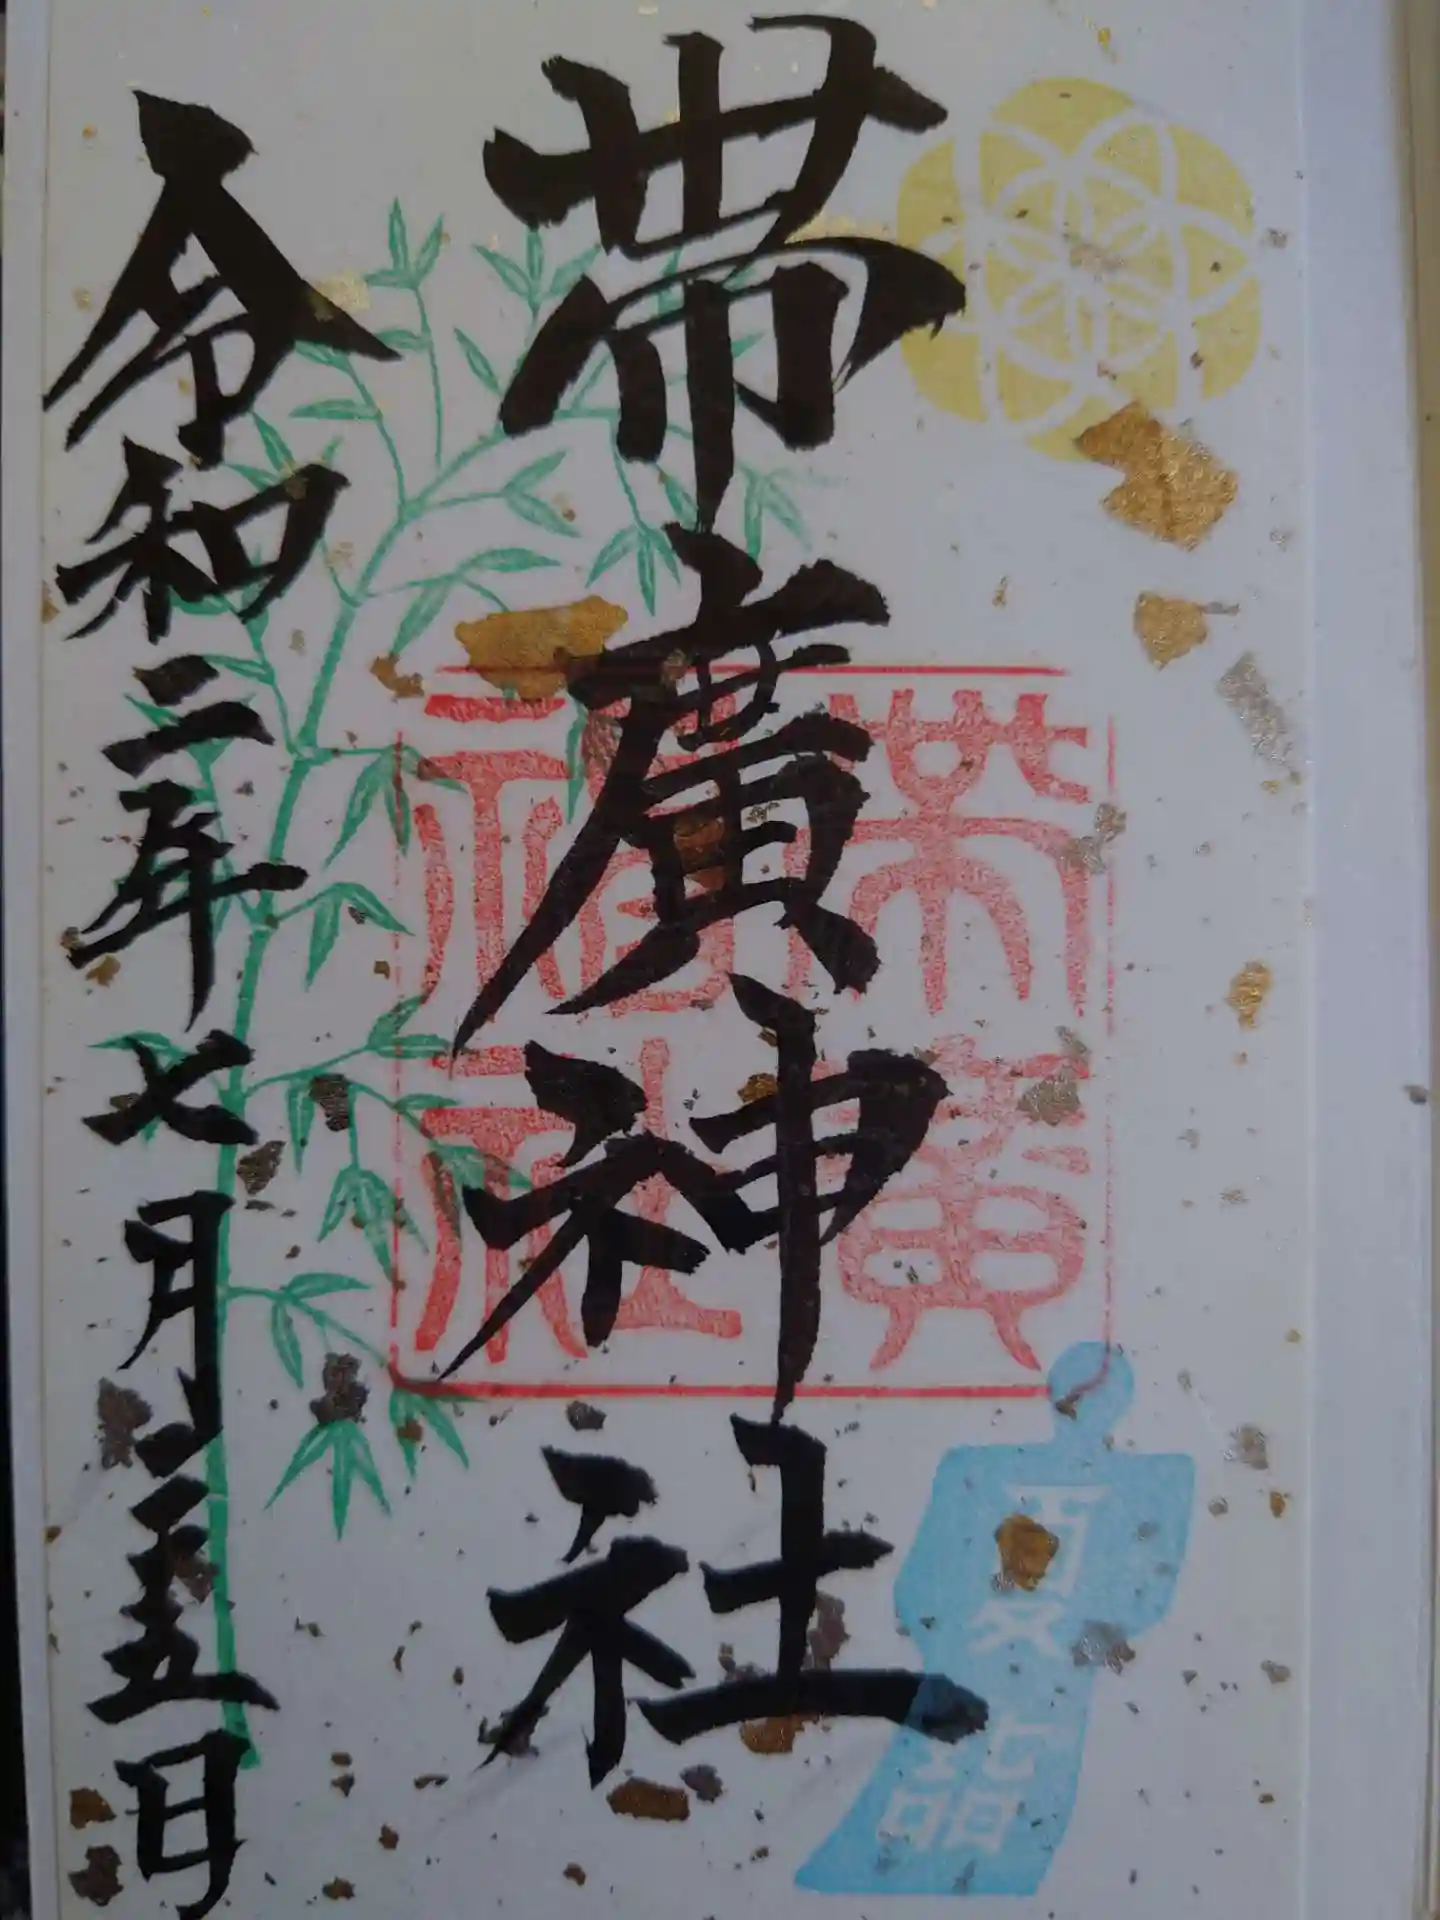 夏詣
帯廣神社
帯廣
神社
令和二年七月二十五日